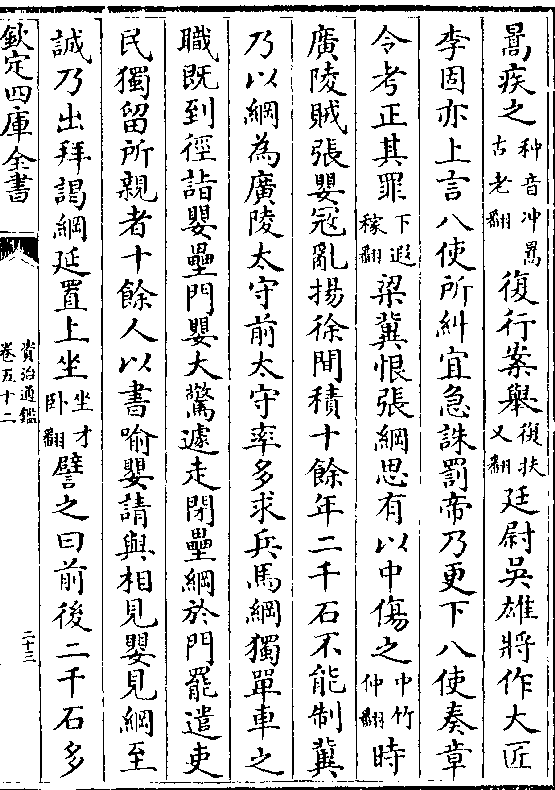 暠疾之种音冲暠古老翻復行案舉復扶又翻廷尉吳雄將作大匠
李固亦上言八使所糾宜急誅罰帝乃更下八使奏章
令考正其罪下遐稼翻梁冀恨張綱思有以中傷之中竹仲翻時
廣陵賊張嬰冦亂揚徐間積十餘年二千石不能制冀
乃以綱為廣陵太守前太守率多求兵馬綱獨單車之
職既到徑詣嬰壘門嬰大驚遽走閉壘綱於門罷遣吏
民獨留所親者十餘人以書喻嬰請與相見嬰見綱至
誠乃出拜謁綱延置上坐坐才卧翻譬之曰前後二千石多
欽定四庫全書
資治通鑑
卷五十二
二十三